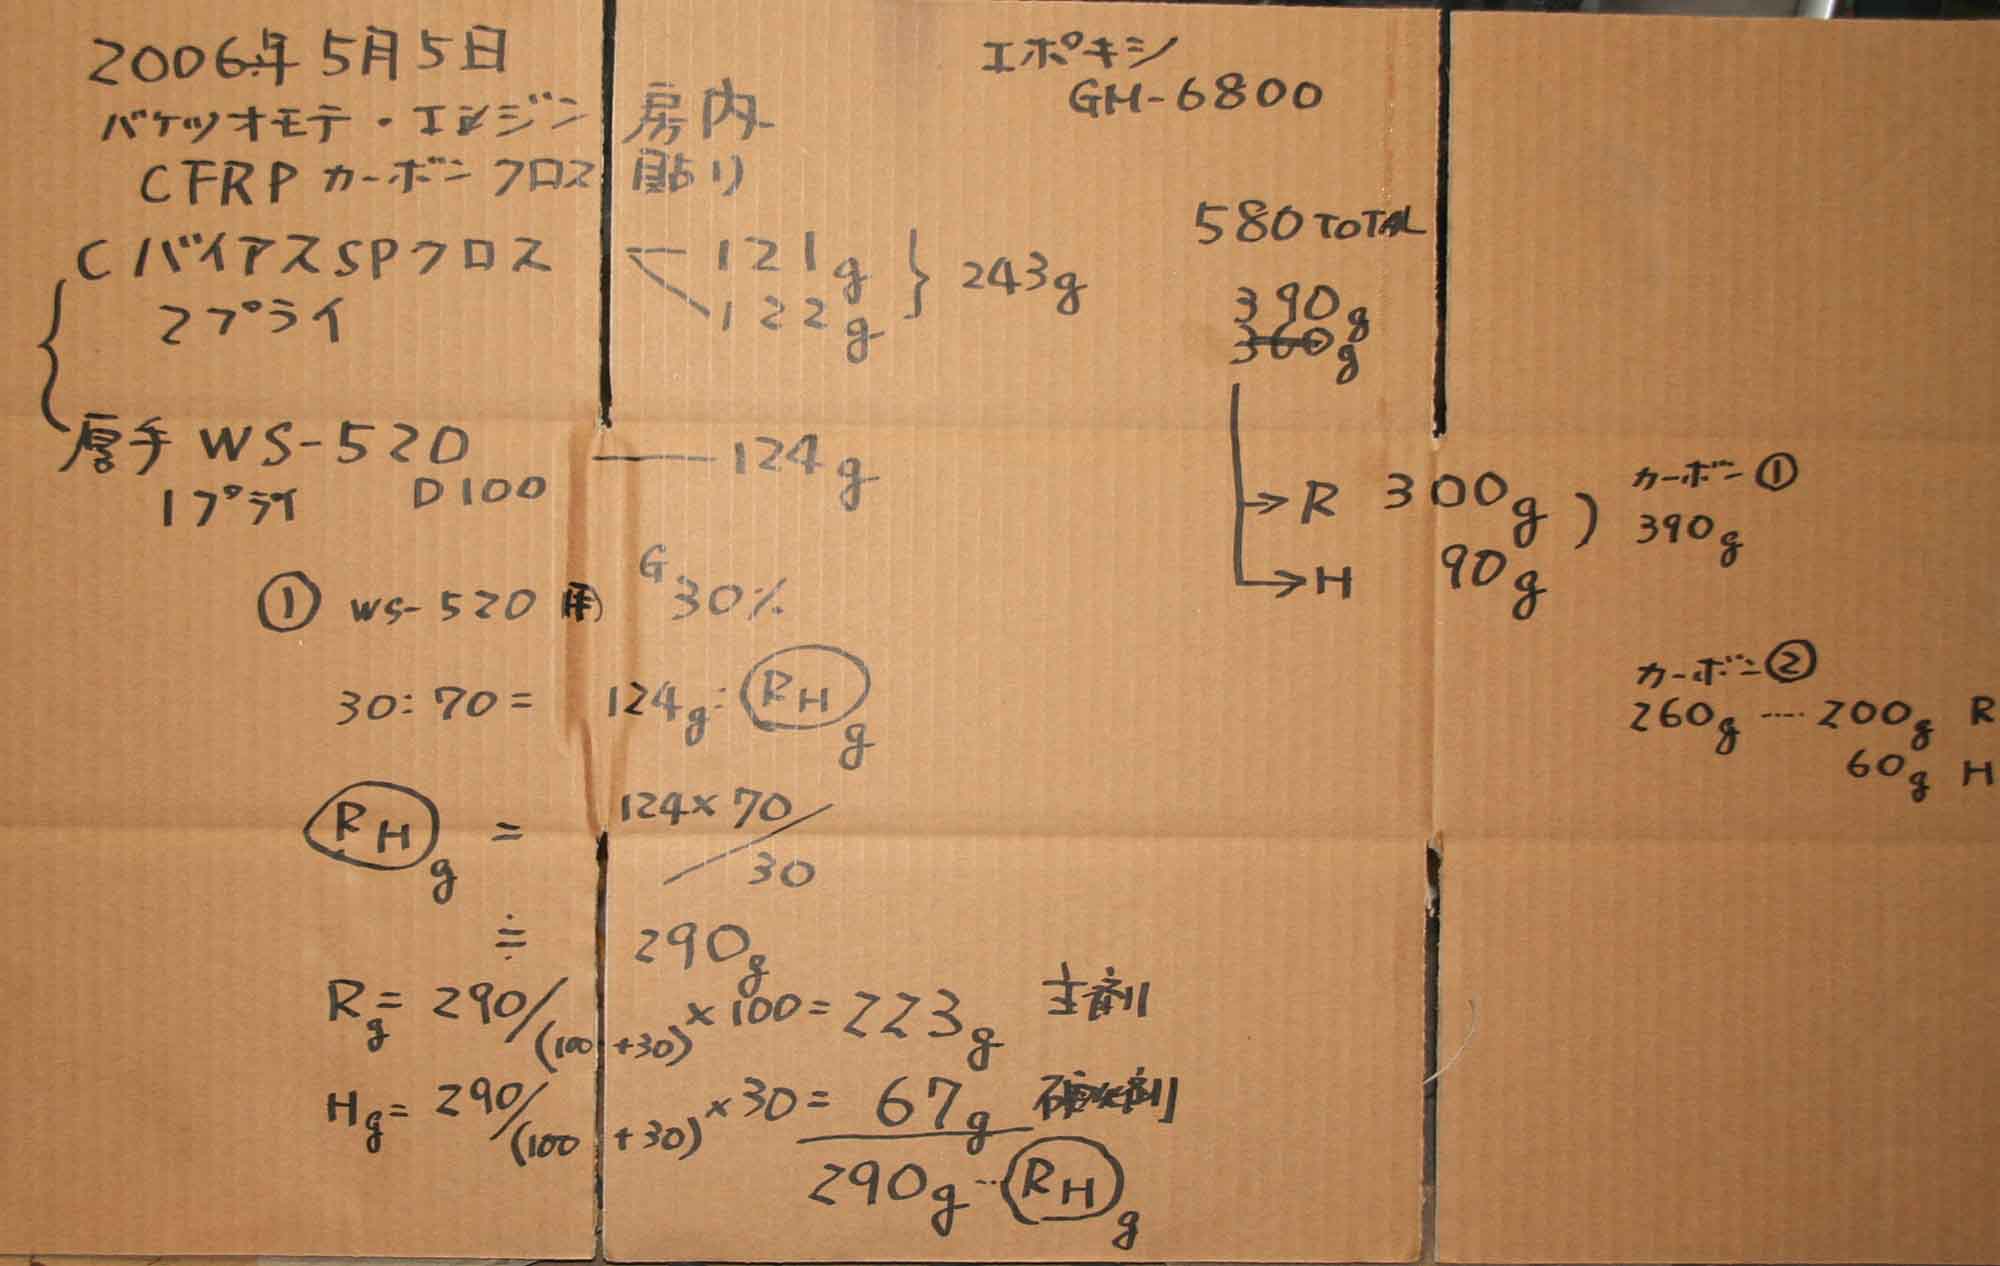 2006年5月5日
バケツオモテ・エンジン房内
CFRP カーボンクロス貼り
CバイアスSPクロス — 121g } 243g
2プライ 122g
厚手 WS-520 — 124g
1プライ D100
① WS-520用 G 30%
30:70= 124g:RHg
RHg = 124×70/30
≒ 290g
Rg= 290/(100+30)×100=223g 主剤
Hg= 290/(100+30)×30= 67g 硬化剤
290g…RHg
エポキシ
GH-6800
580 TOTAL
390g
360g
→R 300g ) カーボン①
390g
→H 90g
カーボン②
260g ‥‥ 200g R
60g H